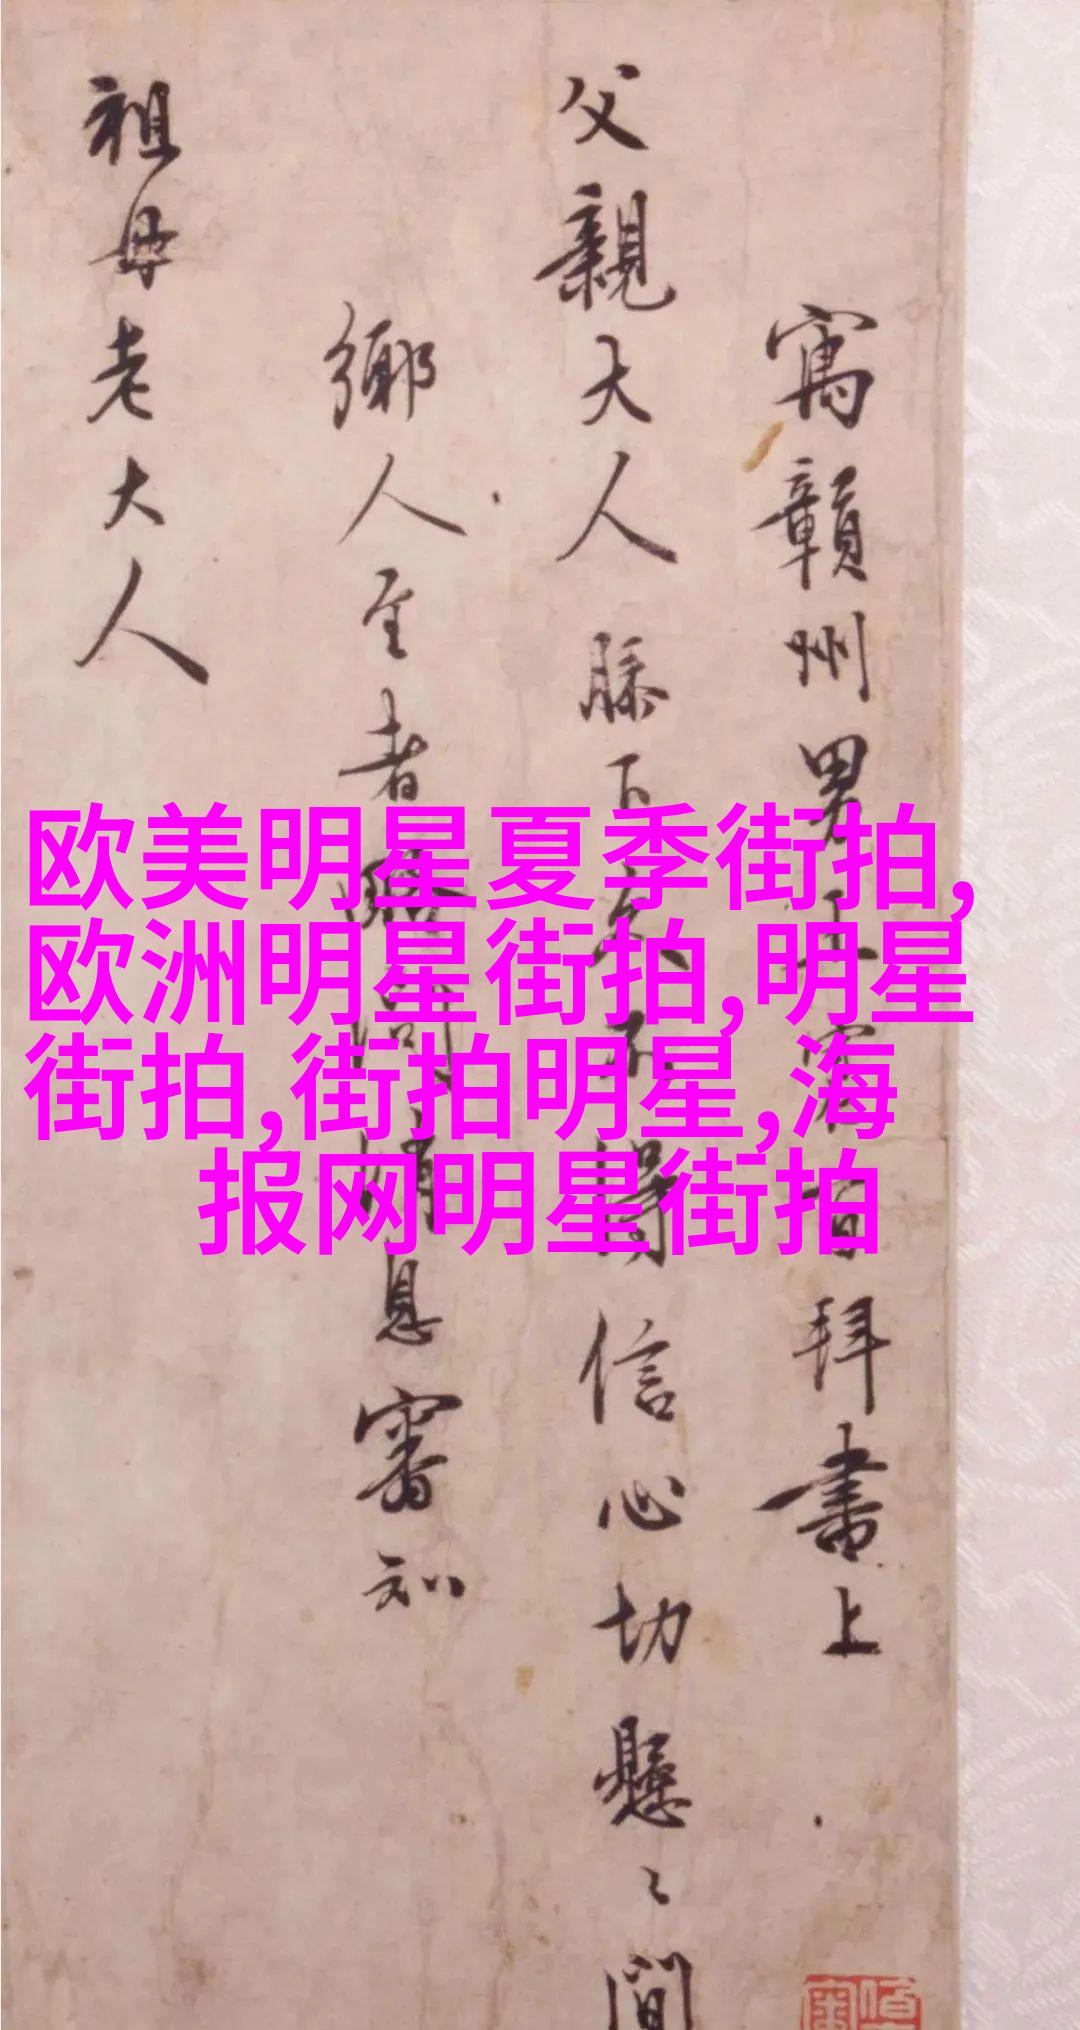 寓贛州男王百拜書上
父親大人膝下久不得信心切懸〻間
鄉人至者略問消息審知
祖母老大人
欧美明星夏季街拍,
欧洲明星街拍,明星
街拍,街拍明星,海
报网明星街拍